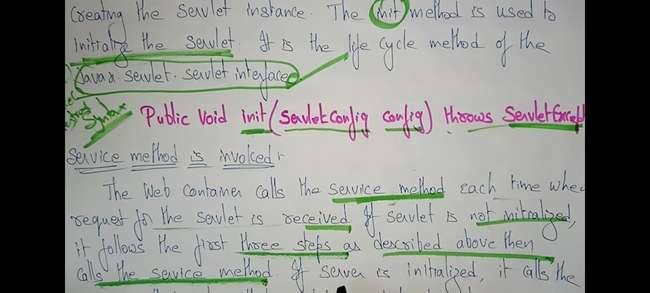 Creating the Servlet instance. The init method is used to
Initialize the Servlet. It is the life cycle method of the
Javax Servlet. Servlet interface
Syntax
Public Void init (ServletConfig config) throws Servlet
Service method is invoked :
The Web Container calls the service method each time when
request for the servlet is received. If servlet is not initialized,
it follows the first three steps as described above then
Calls the service method. If server is initialized, it calls the